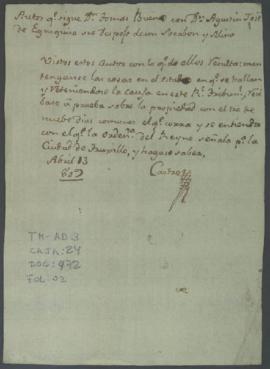 Autos q.e sigue D.n Tomas Bueno con D.n Agustin José
de Egusquisa sre Despojo de un Socabon y Alivio
Vistos estos autos con lo q.e de ellos resulta: man
tenganse las cosas en el estado en q.e se hallan
y reteniendose la causa en este R.l Tribun.l, reci
base á prueba sobre la propiedad con el tno de
nuebe dias comunes el q.e corra y se entienda
con el q.e la orden.sa del Reyno señala p.a la
Ciudad de Truxillo, y hagase saber.
Abril 13
TM-AD 3
CAJA: 24
DOC: 472
FOL: 02